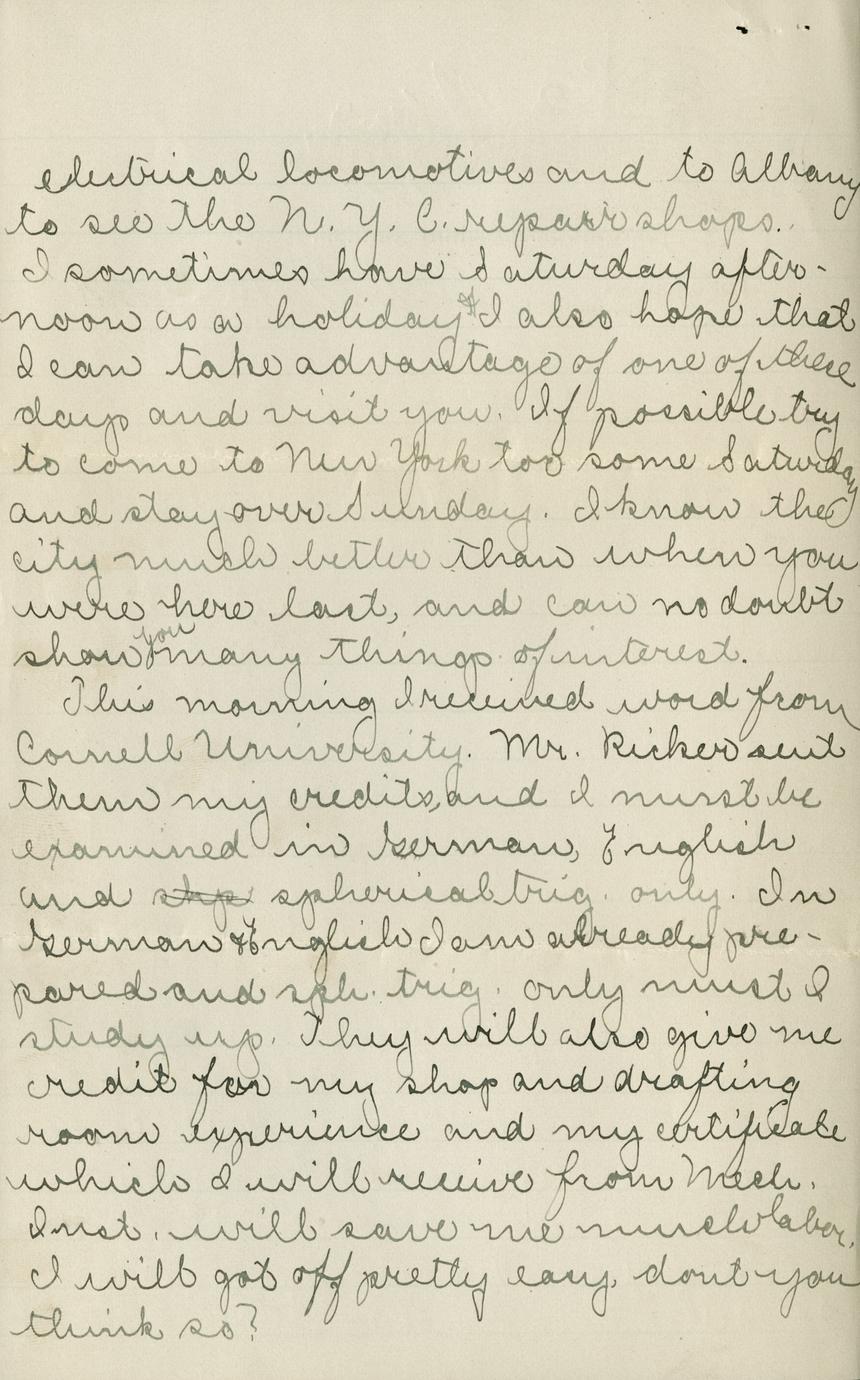 electrical locomotives and to Albany
to see the N. Y. C. repair shops.
I sometimes have Saturday after-
noon as a holiday & I also hope that
I can take advantage of one of these
days and visit you. If possible try
to come to New York too some Saturday
and stay over Sunday. I know the
city much better than when you
were here last, and can no doubt
show you many things of interest.
This morning I received word from
Cornell University. Mr. Ricker sent
them my credits, and I must be
examined in German, English
and sp spherical trig. only. In
German & English I am already pre-
pared and sph. trig. only must I
study up. They will also give me
credit for my shop and drafting
room experience and my certificate
which I will receive from Mech.
Inst. will save me much labor.
I will got off pretty easy, dont you
think so?